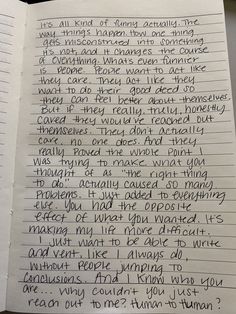 It's all kind of funny actually. The
way things happen. How one thing
gets misconstrued into something
its not, and it changes the course
of everything. Whats even funnier
is people. People want to act like
they care. They act like they
want to do their good deed so
they can feel better about themselves.
But if they really, truly, honestly
cared they would've reached out
themselves. They don't actually
care, no one does. And they
really proved the whole point I
was trying to make. what you
thought of as "the right thing
to do" actually caused so many
problems. It just added to everything
else. You had the opposite
effect of what you wanted. It's
making my life more difficult.
I just want to be able to write
and vent, like I always do,
without people jumping to
conclusions. And I know who you
are... why couldn't you just
reach out to me? Human to Human?